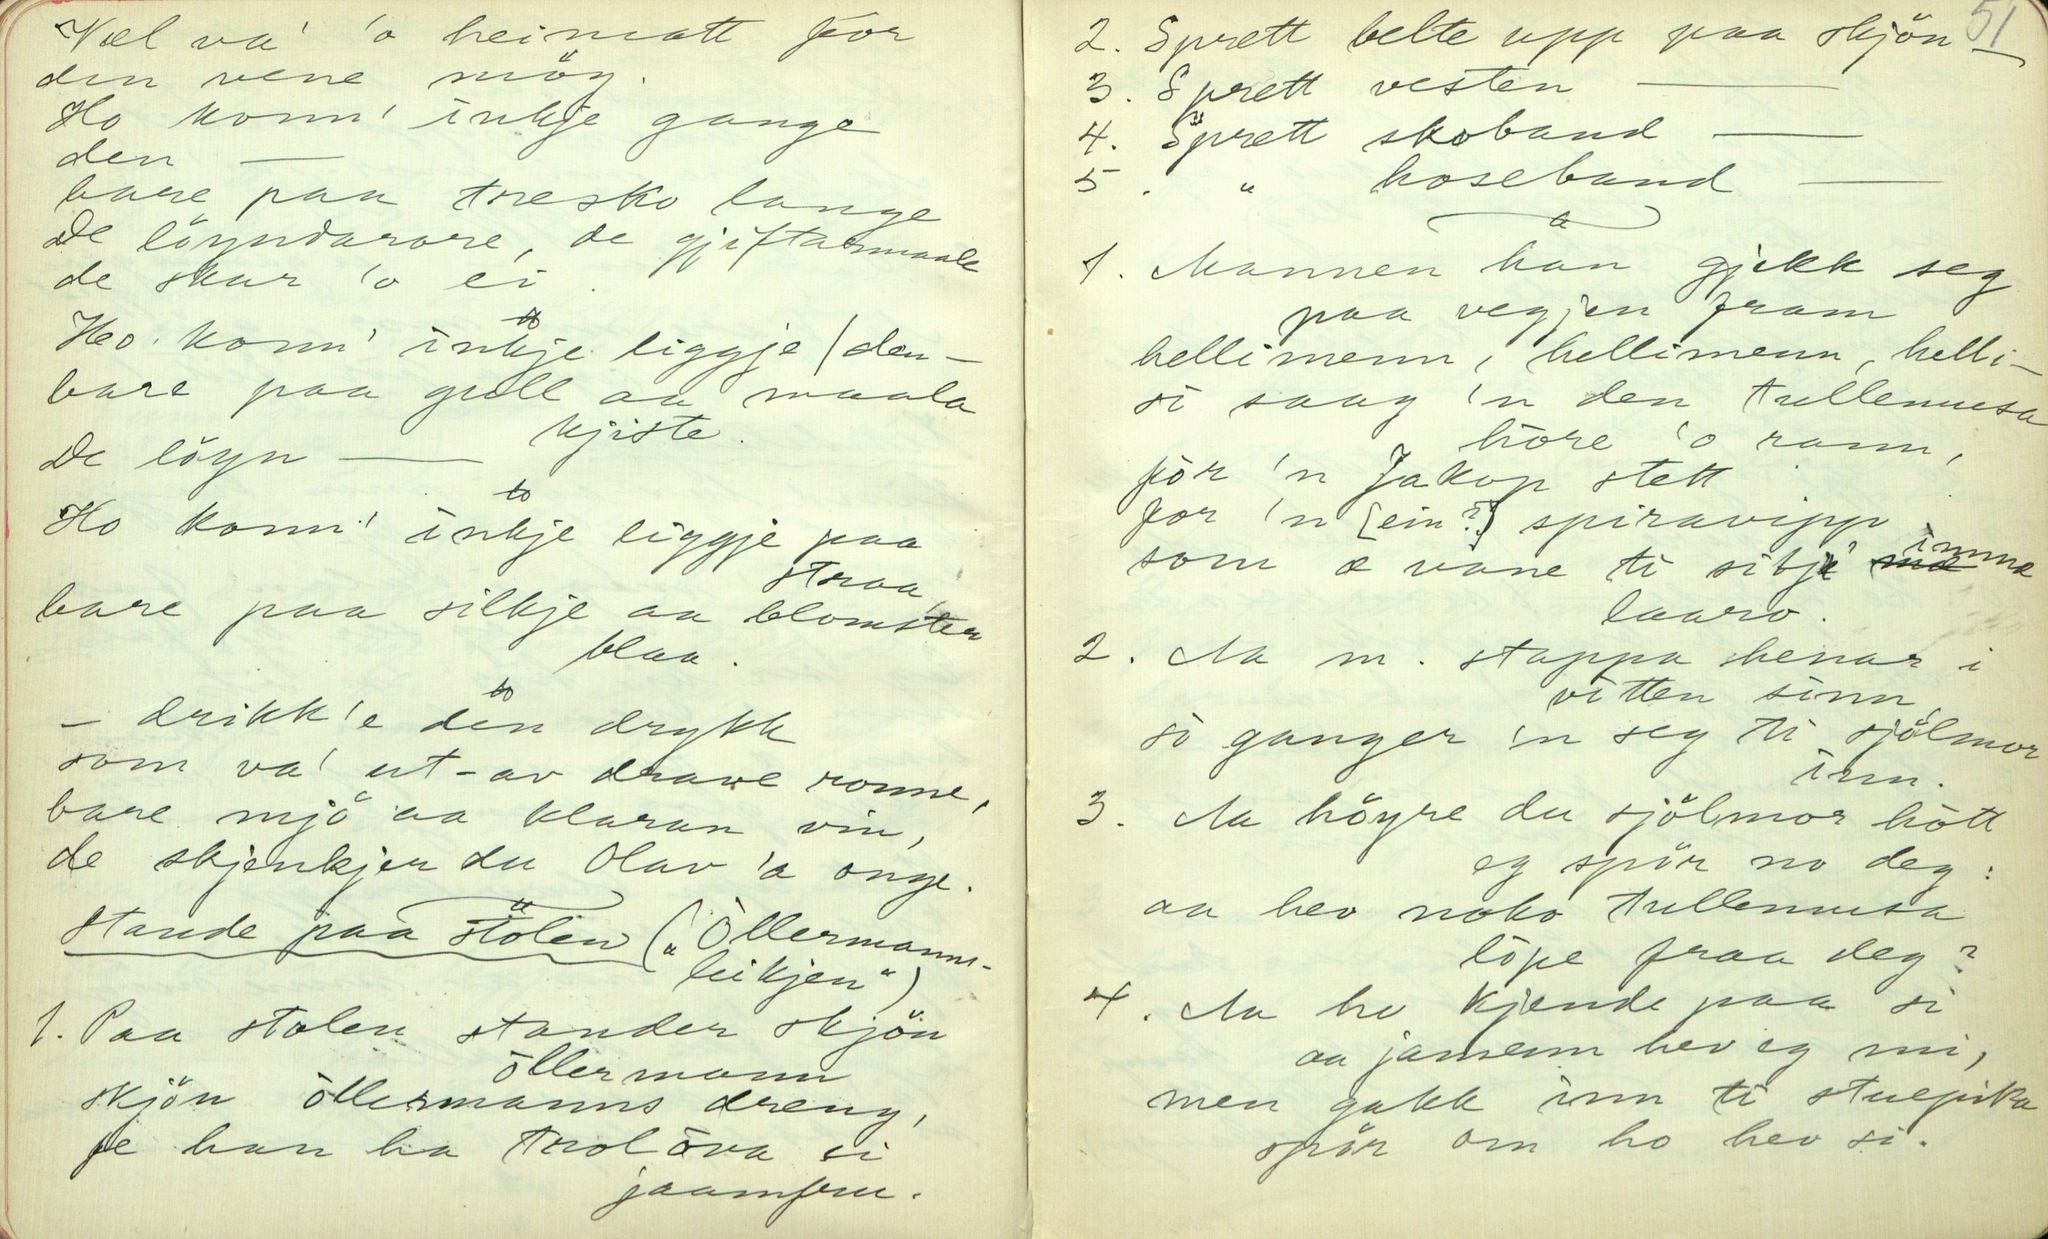 Væl va' 'o heimatt för
den vene möy.
Ho konn' inkje gange
den —
bare paa tresko lange
De löyndarore, de gjiftarmaale
de skar 'o ei.
Ho konn' inkje liggje / den –
bare paa gull aa maala
kjiste.
De löyn —
Ho konn' inkje liggje paa
straa,
bare paa silkje aa blomster
blaa.
– drikk'e den drykk
som va' ut-av drave ronne,
bare mjö aa klaran vin,
de skjenkjer du Olav 'a onge.
Stande paa stolen („Öllermanns-
leikjen")
1. Paa stolen stander skjön
öllermann
skjön öllermanns dreng,
fe han ha trolova si
jaamfru.
51
2. Sprett belte upp paa skjön –
3. Sprett vesten —
4. Sprett skoband —
5. " hoseband —
1. Mannen han gjekk seg
paa vegjen fram
hellimenn, hellimenn, helli–
si saag 'n den tullemusa
höre 'o rann,
för 'n Jakop stett
for 'n [ein?] spiravipp
som æ vane ti sitja imma
laaro.
2. Aa m. stappa henar i
vitten sinn
so ganger 'n seg ti sjölmor
inn.
3. Aa höyre du sjölmor hött
eg spör no deg:
aa hev noko tullemusa
löpe fraa deg?
4. Aa ho kjende paa si
aa jamenn hev eg mi,
men gakk inn ti stuepika
spör om ho hev si.